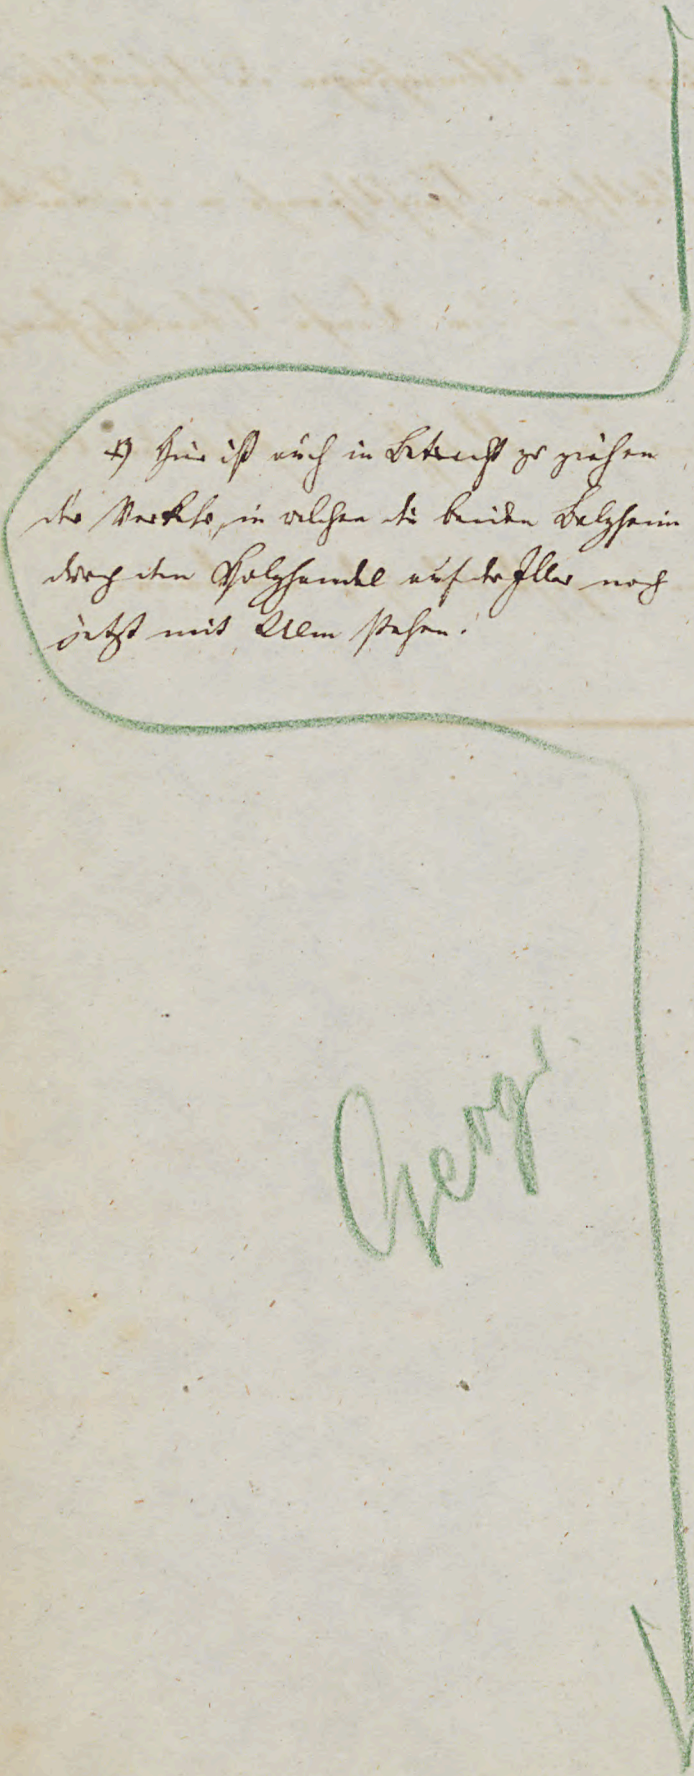 *) Hier ist auch in Betracht zu ziehen
der Verkehr, in welchen die beiden Balzheim
durch den Holzhandel auf der Iller noch
jetzt mit Ulm stehen.